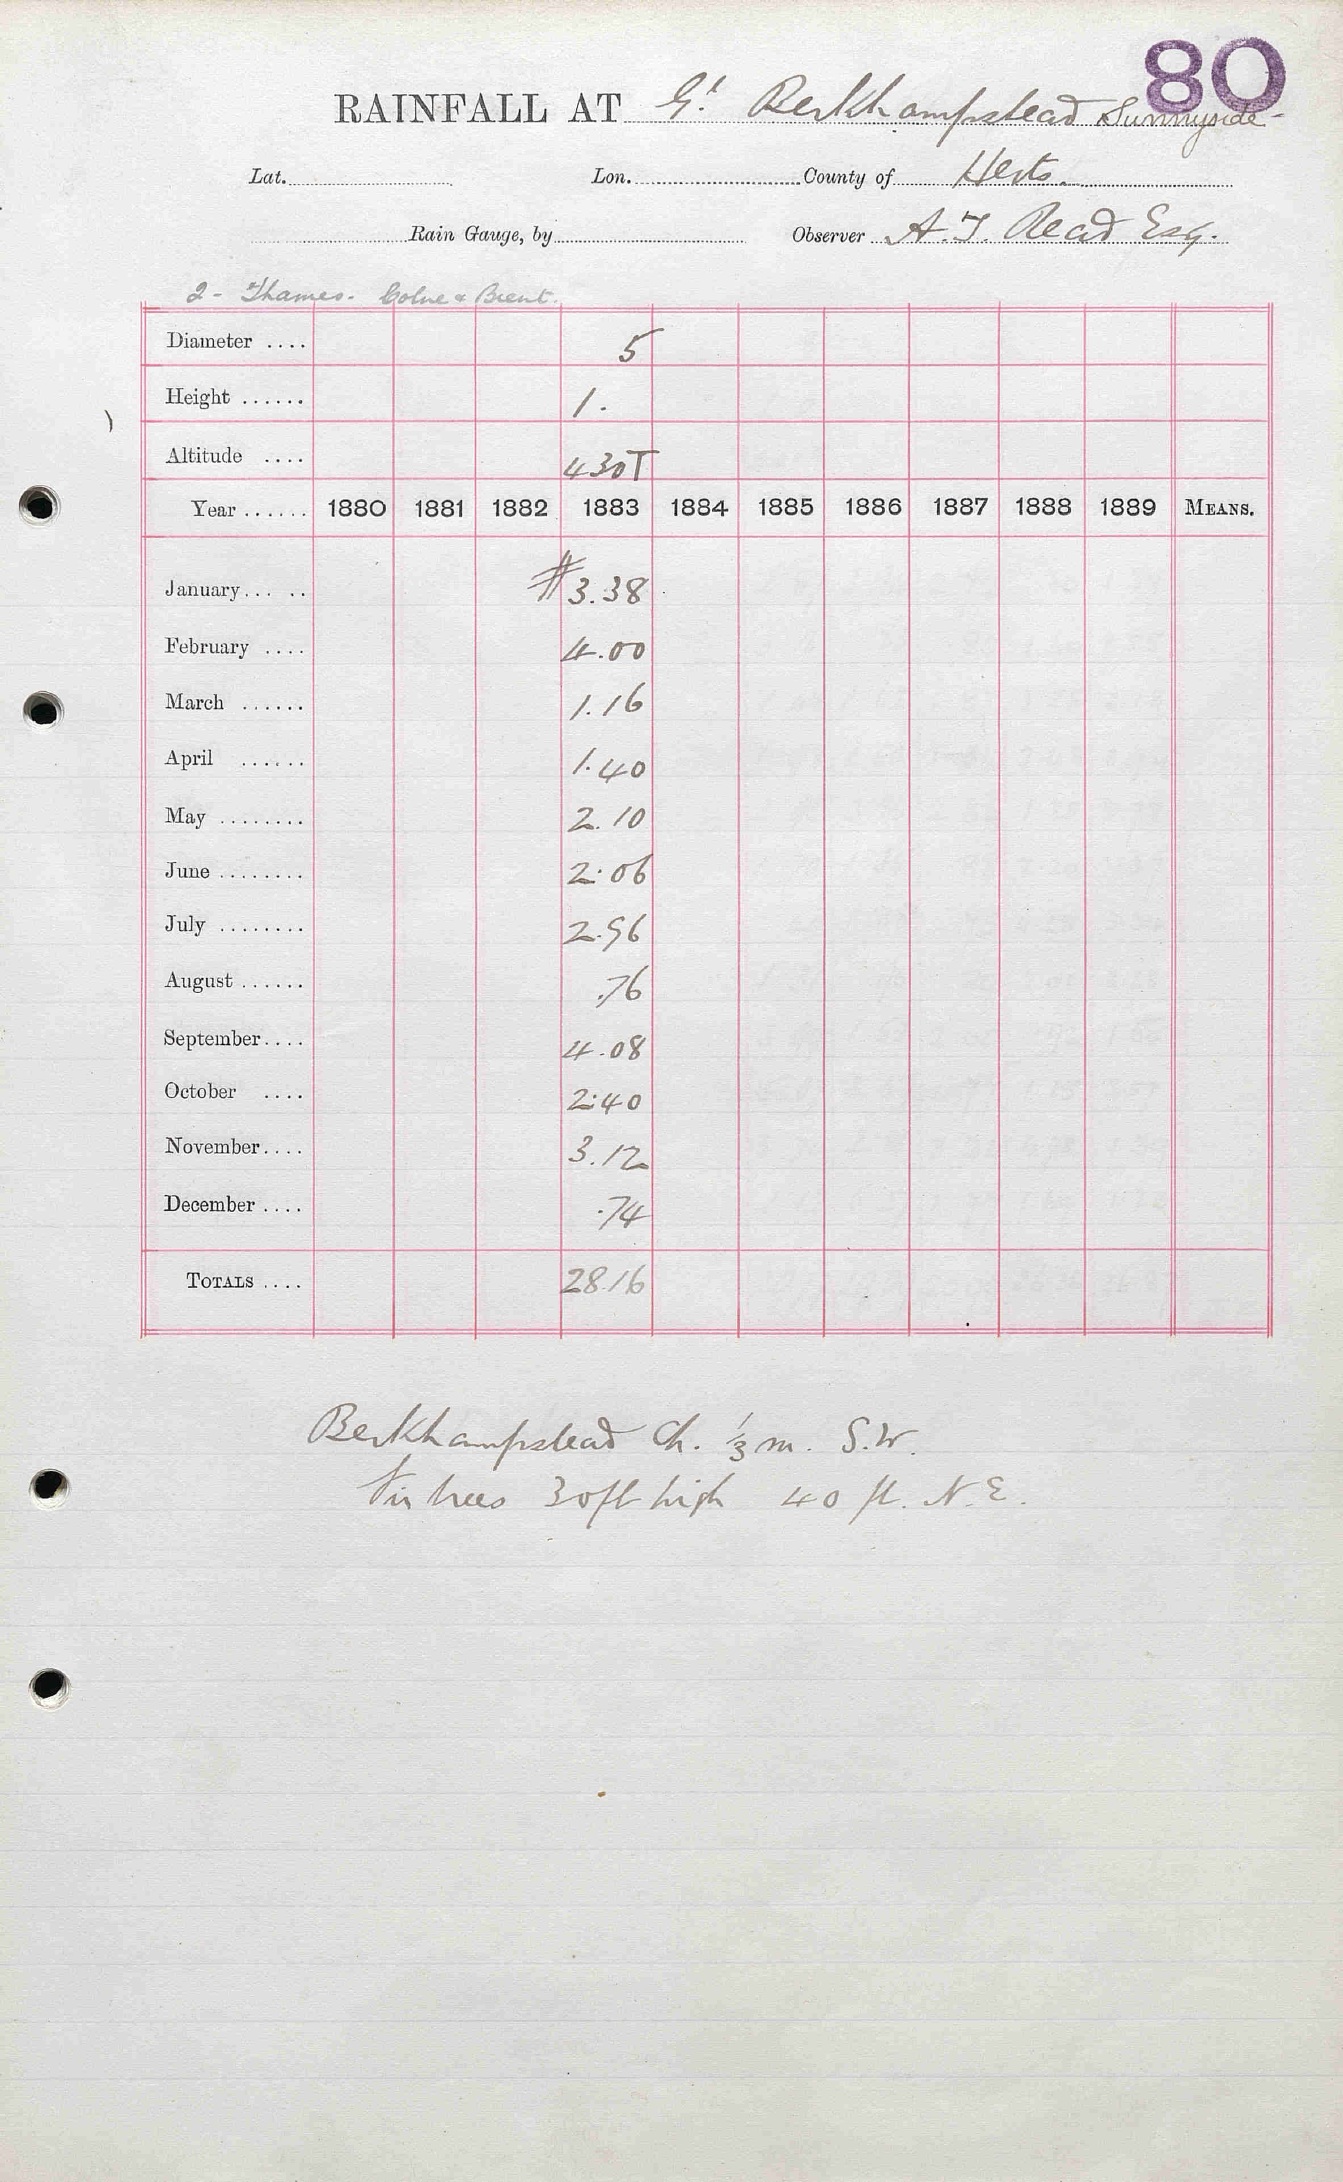 80
RAINFALL AT Gt. Berkhampstead Sunnyside
Lat. Lon. County of Herts.
Rain Gauge, by Observer A. T. Read Esq.
2 - Thames. Colne & Brent.
Diameter .... 5
Height ...... 1.
Altitude .... 430T
Year ...... 1880 1881 1882 1883 1884 1885 1886 1887 1888 1889 MEANS.
January ... .. #3.38
February .... 4.00
March ...... 1.16
April ...... 1.40
May ........ 2.10
June ........ 2.06
July ........ 2.96
August ...... .76
September .... 4.08
October .... 2.40
November .... 3.12
December .... .74
TOTALS .... 28.16
Berkhampstead Ch. 1/3 m. S.W.
Fir trees 30ft high 40 ft. N.E.